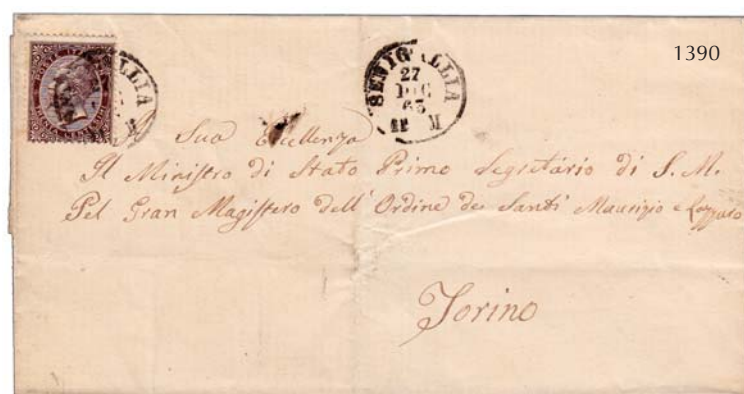 1390
SENIGALLIA
27
DIC
63
M
SENIGALLIA
M
POSTE ITALIANE
Sua Eccellenza
Il Ministro di Stato Primo Segretario di S. M.
Pel Gran Magistero dell' Ordine de Santi Maurizio e Lazzaro
Torino